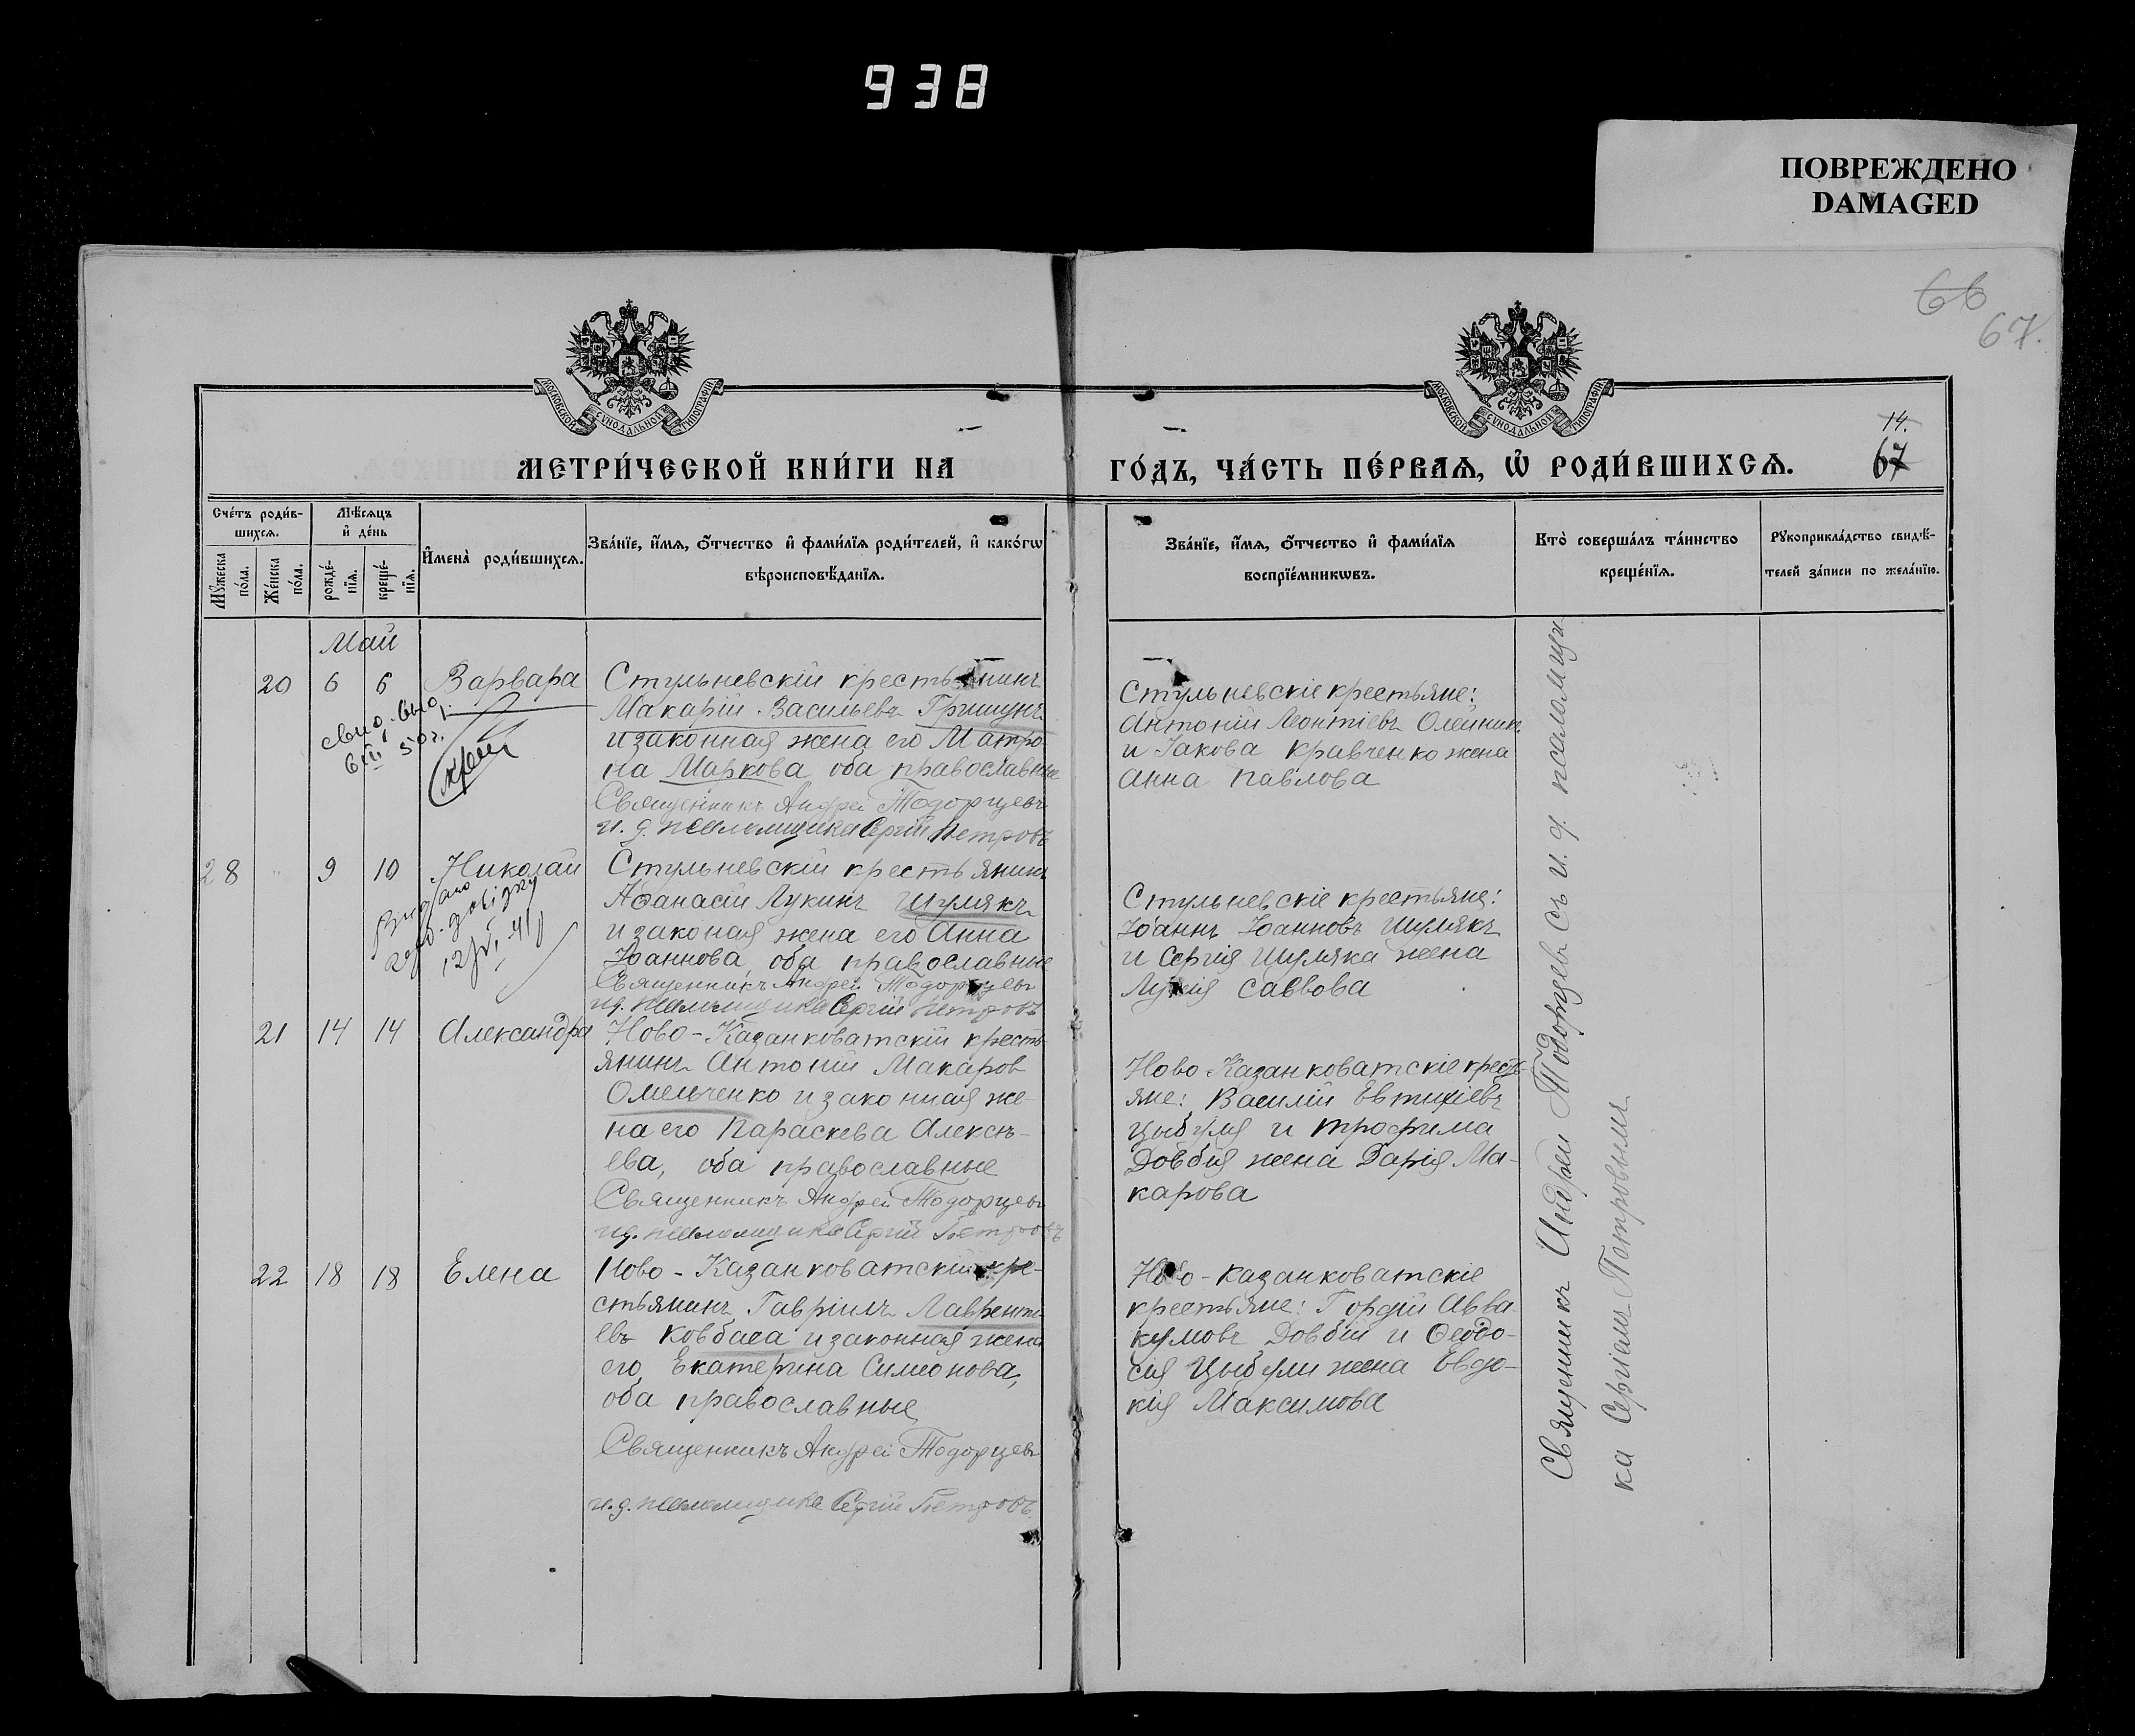 938
ПОВРЕЖДЕНО
DAMAGED
66
67.
МОСКОВСКОЙ СУНОДАЛЬНОЙ ТИПОГРАФІИ
МОСКОВСКОЙ СУНОДАЛЬНОЙ ТИПОГРАФІИ
14.
67
МЕТРИ́ЧЕСКОЙ КНИ́ГИ НА
ГО́ДЪ, ЧА́СТЬ ПЕ́РВАѦ, Ѡ҆ РОДИ́ВШИХСѦ.
Сче́тъ роди́в-
шихсѧ.
Мꙋ́жеска по́ла.
Же́нска по́ла.
Мѣ́сѧцъ
и҆ де́нь
рожде́-
нїѧ.
креще́-
нїѧ.
И҆мена̀ роди́вшихсѧ.
Зва́нїе, и҆́мѧ, ѻ҆́тчество и҆ фами́лїѧ роди́телей, и҆ како́гѡ
вѣроисповѣ́данїѧ.
Зва́нїе, и҆́мѧ, ѻ҆́тчество и҆ фами́лїѧ
воспрїе́мникѡвъ.
Кто̀ соверша́лъ та́инство
креще́нїѧ.
Рꙋкоприкла́дство свидѣ́-
телей за́писи по жела́нїю.
Май
20 6 6 Варвара
Стульневскій крестьянинъ
Макарій Васильевъ Гришунъ
и законная жена его Матро-
на Маркова, оба православные
Священникъ Андрей Тодорцевъ
и. д. псаломщика Сергій Петровъ
Стульневскіе крестьяне:
Антоній Леонтіевъ Олейник
и Іакова Кравченко жена
Анна Павлова
28 9 10 Николай
Стульневскій крестьянинъ
Афанасій Лукинъ Шумякъ
и законая жена его Анна
Іоаннова, оба православные
Священникъ Андрей Тодорцевъ
и д. псаломщика Сергій Петровъ
Стульневскіе крестьяне:
Іоаннъ Іоанновъ Шумякъ
и Сергія Шумяка жена
Лукія Саввова
21 14 14 Александра
Ново-Казанковатскій кресть-
янинъ Антоній Макаров
Омельченко и законная же-
на его Параскева Алексѣ-
ева, оба православные
Священникъ Андрей Тодорцевъ
и д. псаломщика Сергій Петровъ
Ново-Казанковатскіе кресть-
яне: Василій Евтихіевъ
Цыбуля и Трофима
Довбия жена Дарія Ма-
карова
22 18 18 Елена
Ново-Казанковатскій кре-
стьянинъ Гавріилъ Лавренті-
евъ Ковбаса и законная жена
его, Екатерина Симеонова,
оба православные
Священникъ Андрей Тодорцевъ
и. д. псаломщика Сергій Петровъ
Ново-Казанковатскіе
крестьяне: Гордій Авва-
кумовъ Довбій и Феодо-
сія Цыбули жена Евдо-
кія Максимова
Священникъ Андрей Тодорцевъ съ и. д. псаломщи-
ка Сергіемъ Петровымъ